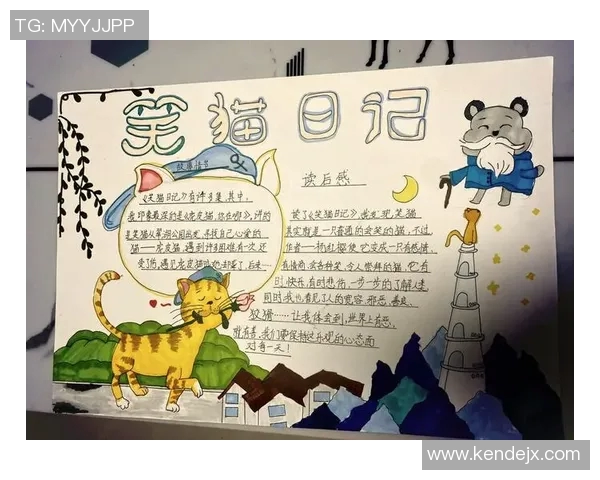 TG: MYYJJPP
笑猫日记
故事情节
《笑猫日记》有许多集,其中,
我印象最深的是《虎皮猫,你在哪》,讲的
是笑猫从翠湖公园出发,寻找自己心爱的
猫——虎皮猫,遇到许多困难有一次还
受了伤,遇见虎皮猫
读后感
读了《笑猫日记》,我发现,笑猫
其实就是一只普通的会笑的猫,不过,
作者——杨红樱使它变成一只有感情、
有情商,会各种笑,令人崇拜的猫,它有
时快乐,有时悲伤,一步一步的了解人类
同时,我也看见了人的宽容、邪恶、善良、
狡猾……让我体会到,世界上有恶,
就有善,我们要保持这乐观的心态面
对每一天!
www.kendejx.com